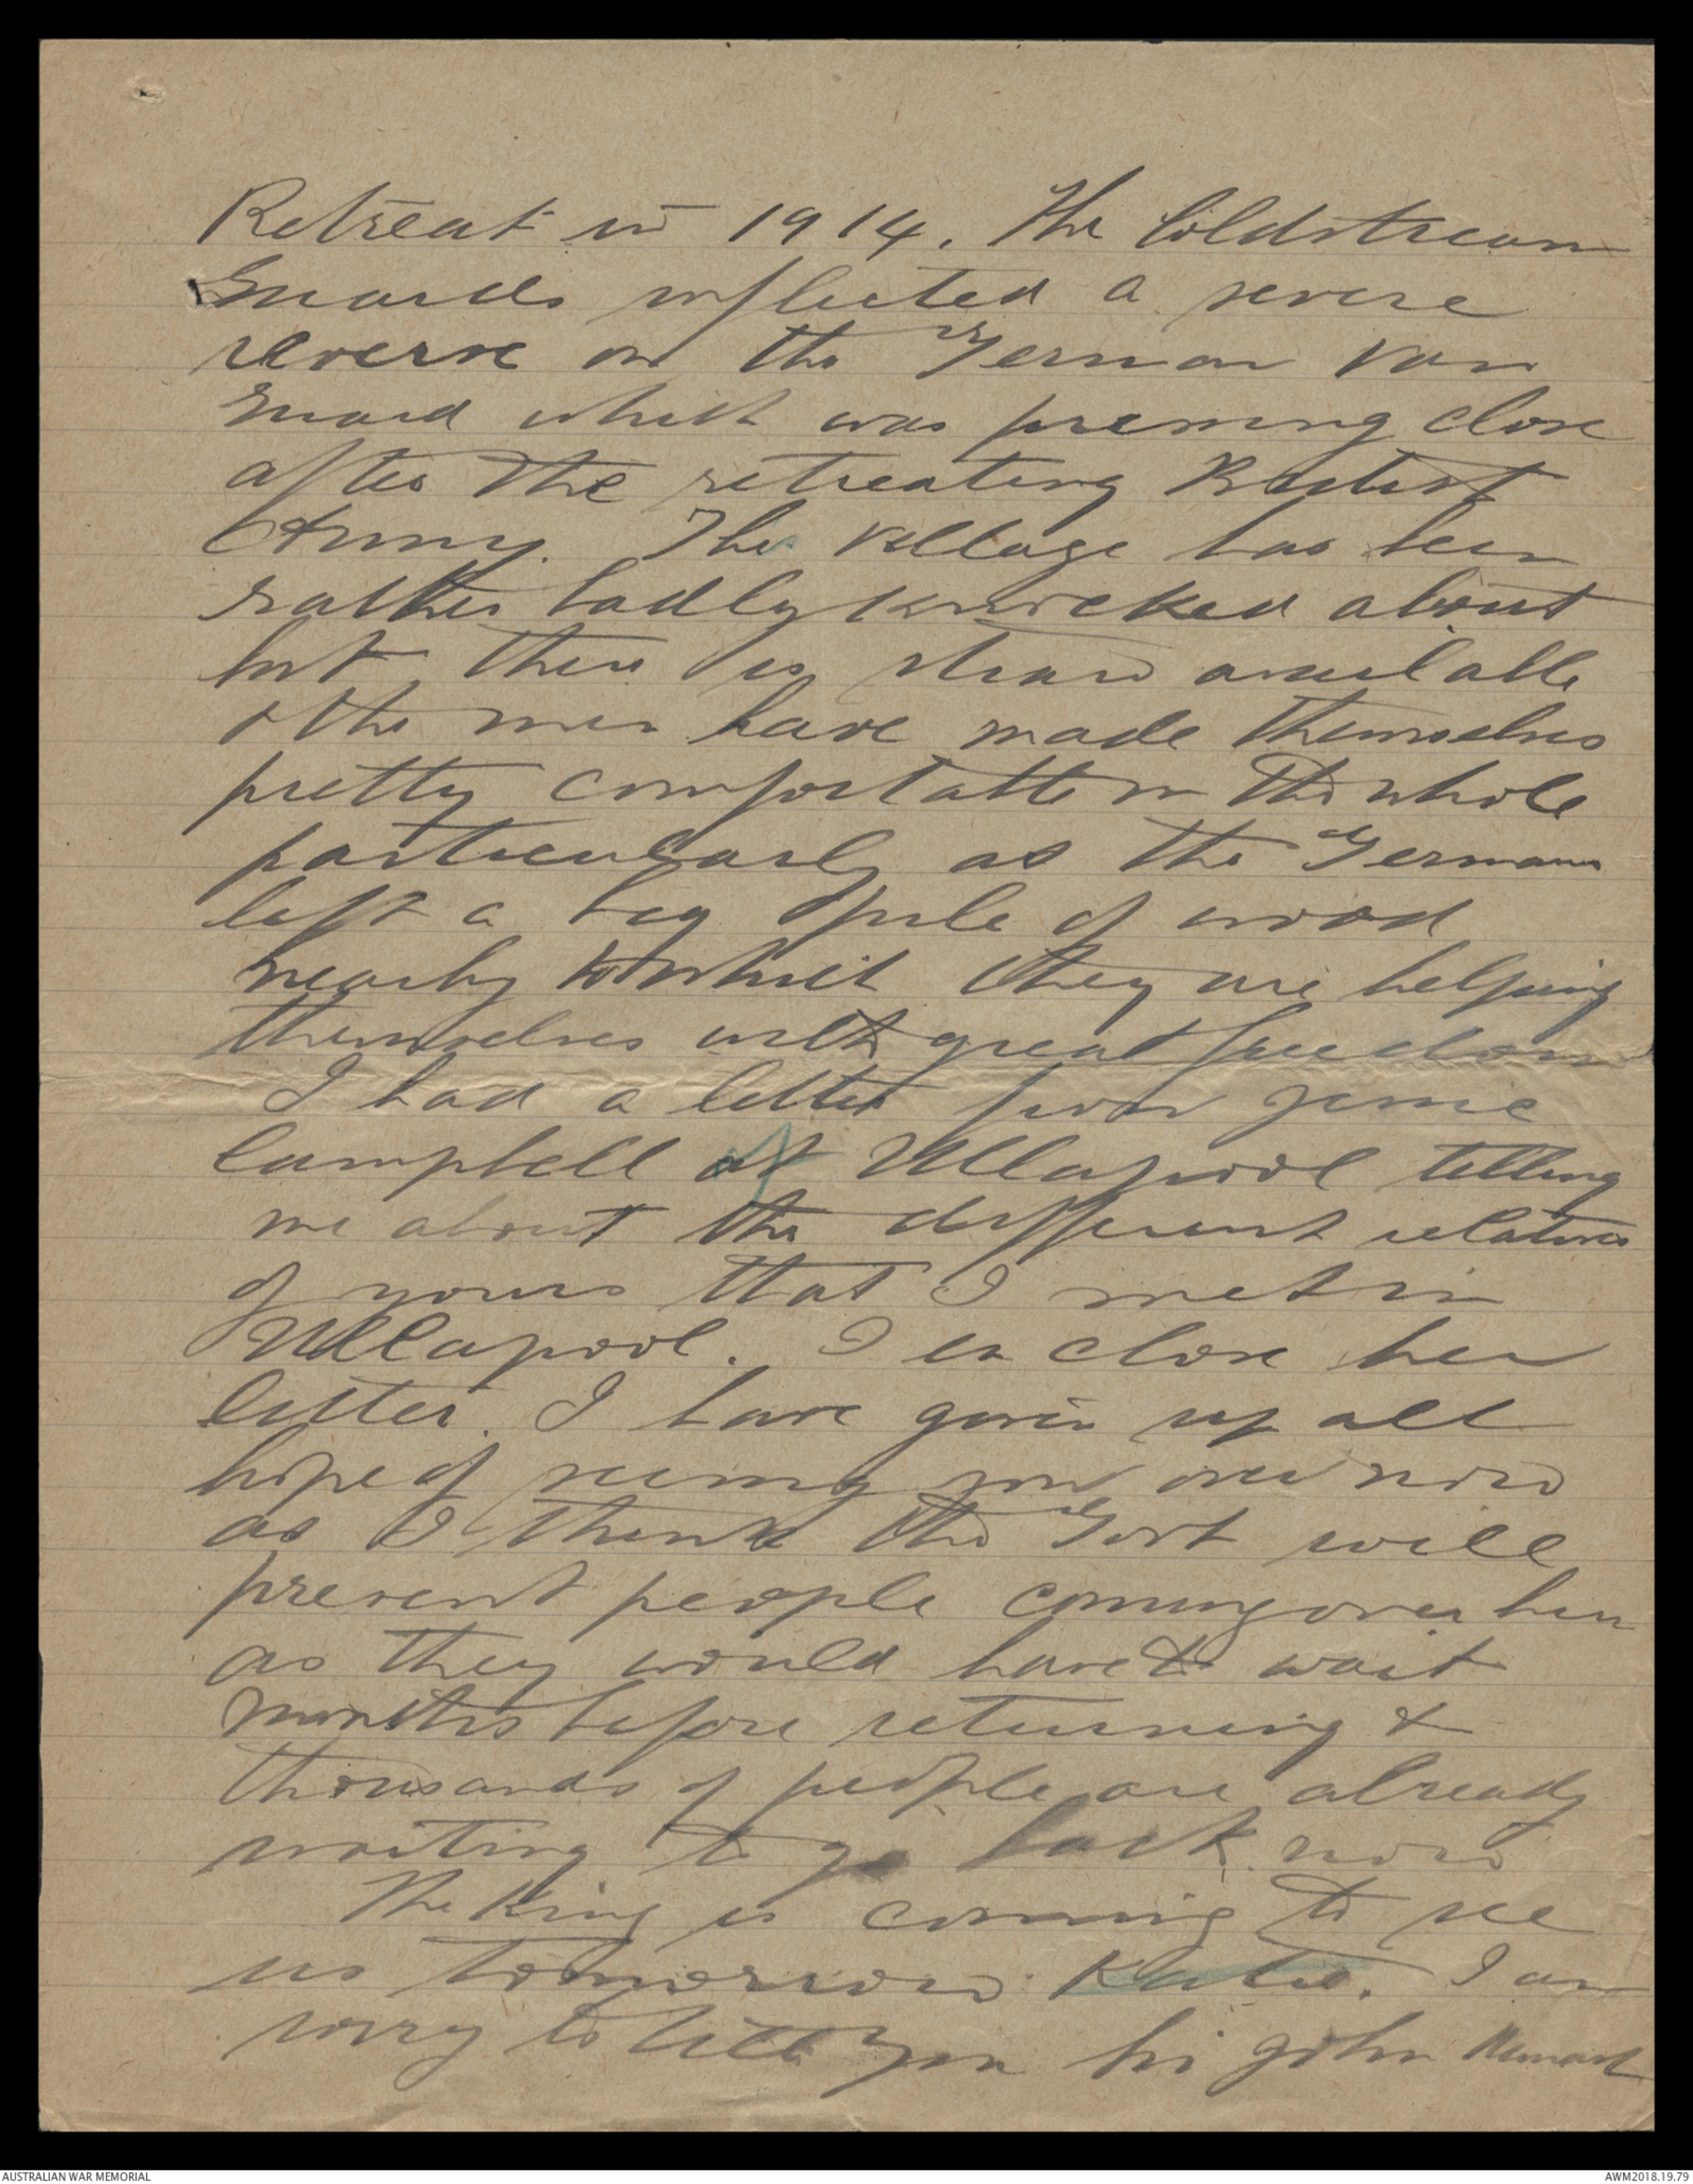 Retreat in 1914. The Coldstream
Guards inflicted a severe
reverse on the German Van
Guard which was pressing close
after the retreating British
Army. This Village has been
rather badly knocked about
but there is straw available
& the men have made themselves
pretty comfortable on the whole
particularly as the Germans
left a big pile of wood
nearby to which they are helping
themselves with great freedom
I had a letter from Jamie
Campbell of Ullapool telling
me about the different relatives
of yours that I met in
Ullapool. I enclose her
letter. I have given up all
hope of seeing you over now
as I think the Govt will
prevent people coming over here
as they would have to wait
months before returning &
thousands of people are already
waiting to go back now
The King is coming to see
us tomorrow Katie. I am
sorry to tell you Lt John